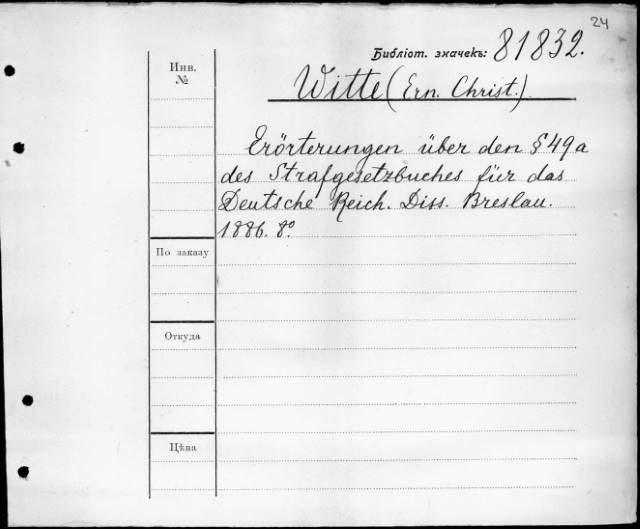 24
Библіот. значекъ: 81832.
Инв.
№
Witte (Ern. Christ.)
Erörterungen über den § 49a
des Strafgesetzbuches für das
Deutsche Reich. Diss. Breslau.
1886. 8º
По заказу
Откуда
Цѣна